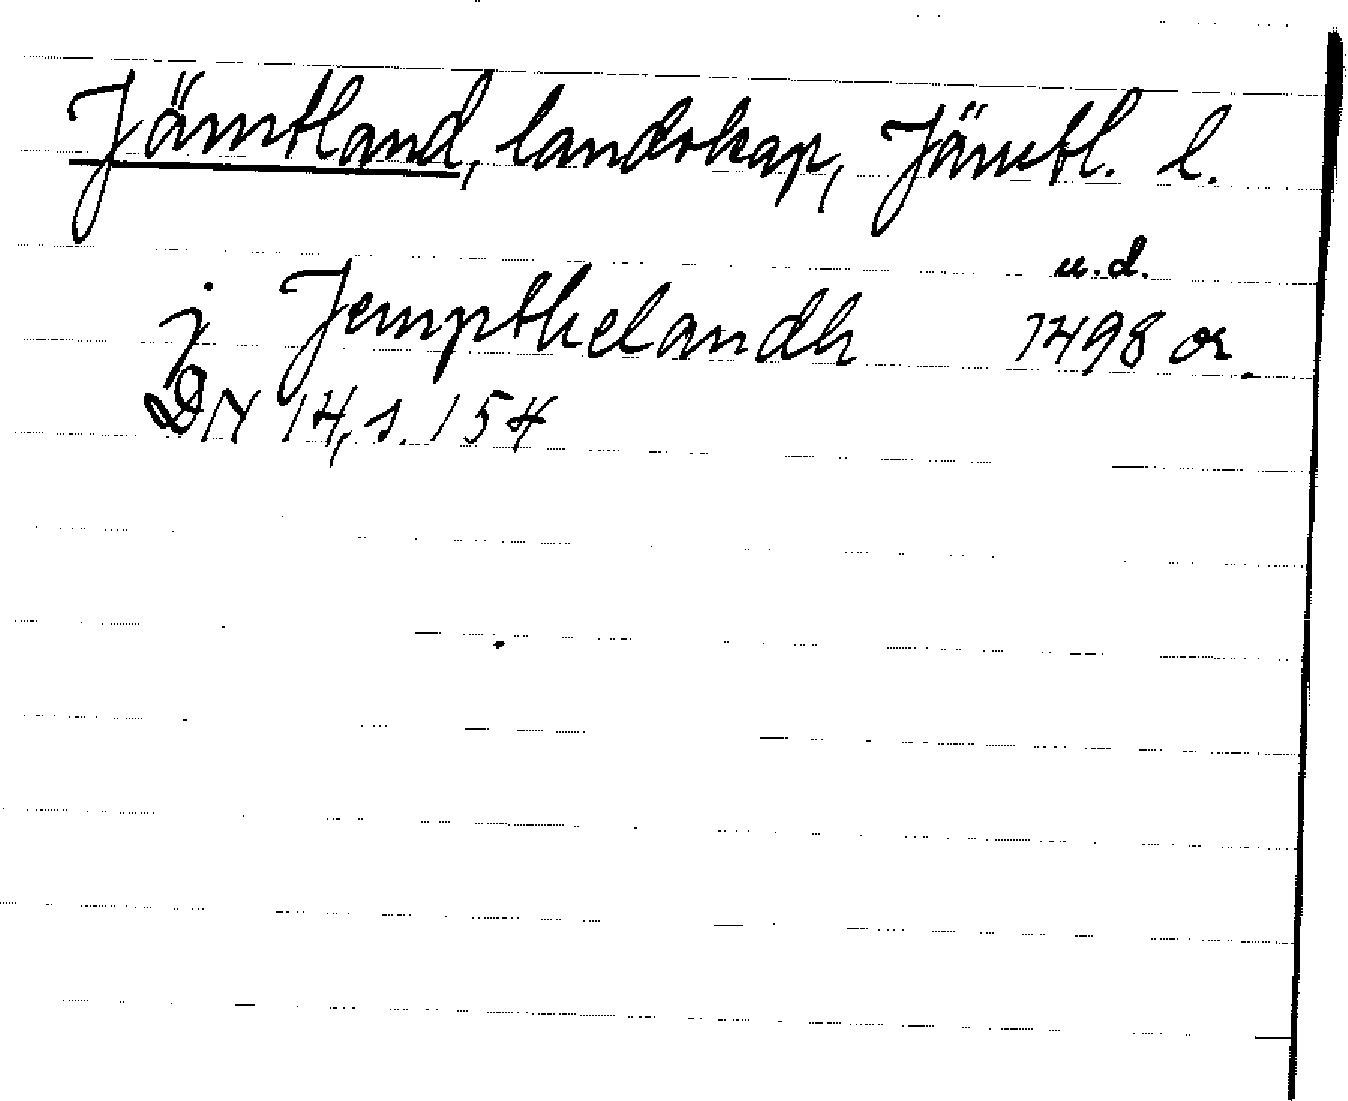 Jämtland, landskap, Jämtl. l.
u.d.
j Jempthelandh 1498 or.
DN 14, s. 154